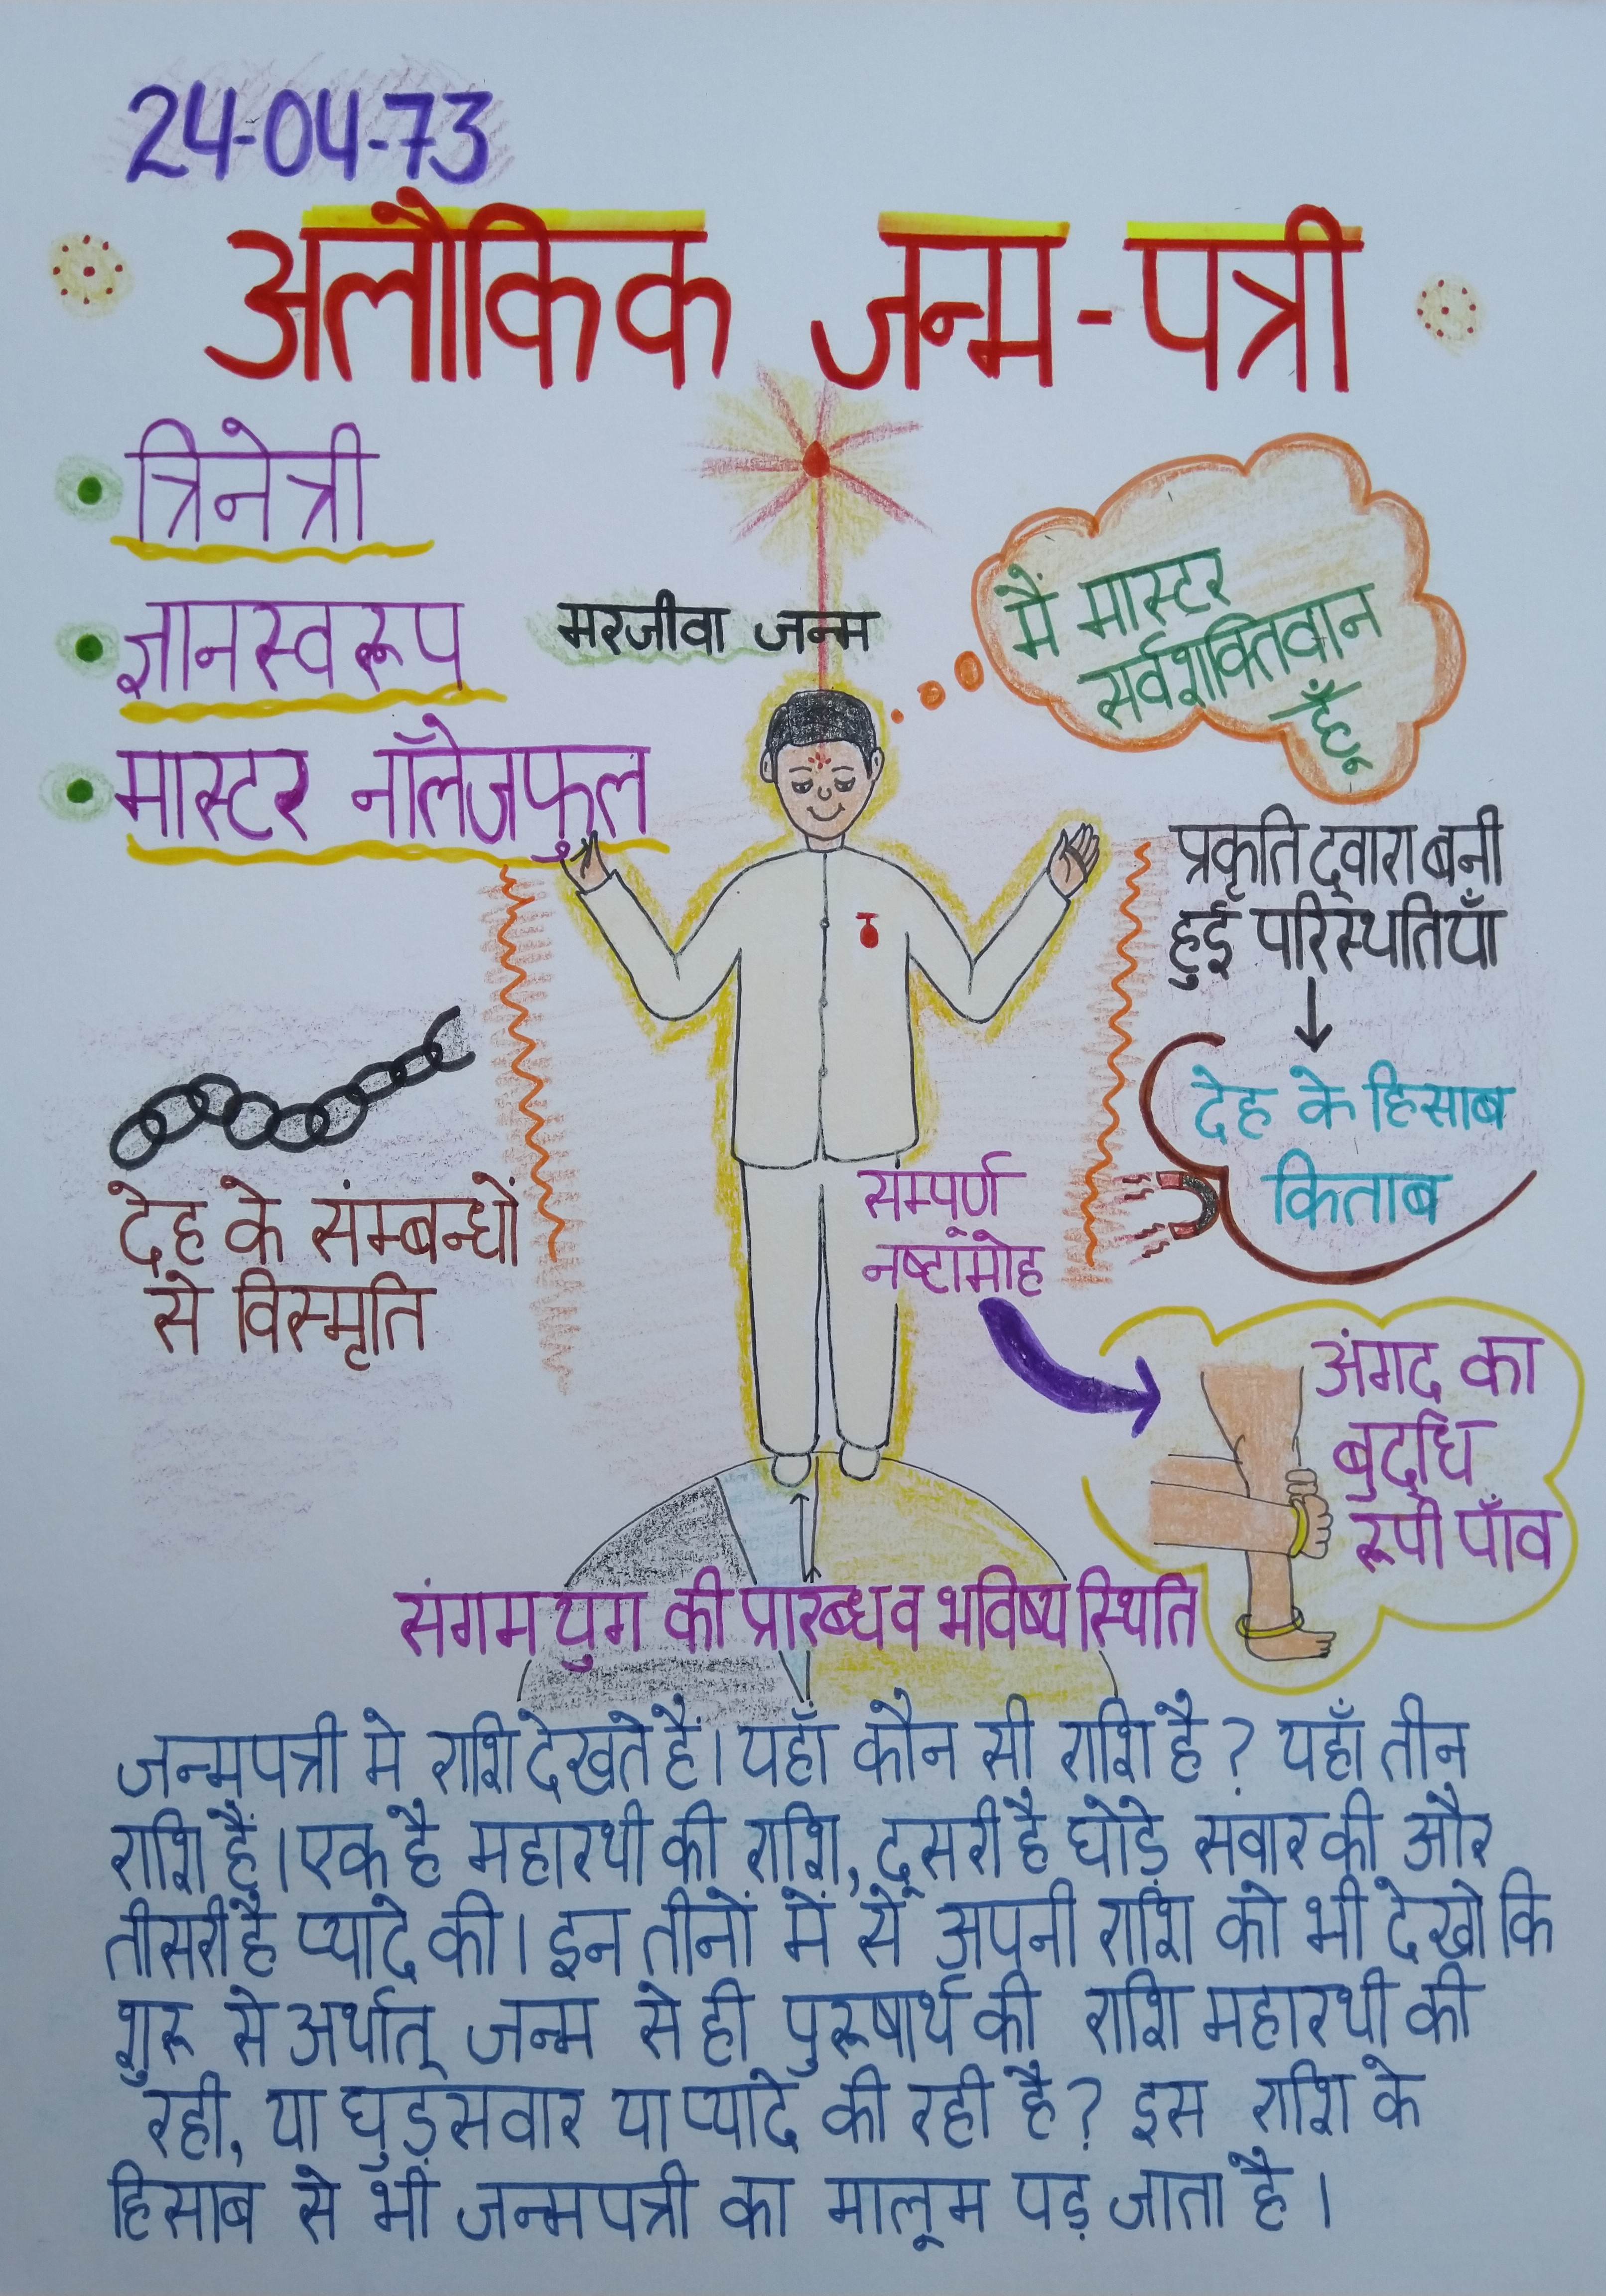 24-04-73
अलौकिक जन्म-पत्री
त्रिनेत्री
ज्ञानस्वरूप
मास्टर नॉलेजफुल
मरजीवा जन्म
मैं मास्टर
सर्वशक्तिवान
हूँ
प्रकृति द्वारा बनी
हुई परिस्थितियाँ
देह के हिसाब
किताब
देह के संम्बन्धों
से विस्मृति
सम्पूर्ण
नष्टोमोह
अंगद का
बुद्धि
रूपी पाँव
संगमयुग की प्रारब्ध व भविष्य स्थिति
जन्मपत्री मे राशि देखते हैं। यहाँ कौन सी राशि है? यहाँ तीन
राशि हैं। एक है महारथी की राशि, दूसरी है घोड़े सवार की और
तीसरी है प्यादे की। इन तीनों में से अपनी राशि को भी देखो कि
शुरू से अर्थात् जन्म से ही पुरूषार्थ की राशि महारथी की
रही, या घुड़सवार या प्यादे की रही है? इस राशि के
हिसाब से भी जन्मपत्री का मालूम पड़ जाता है।